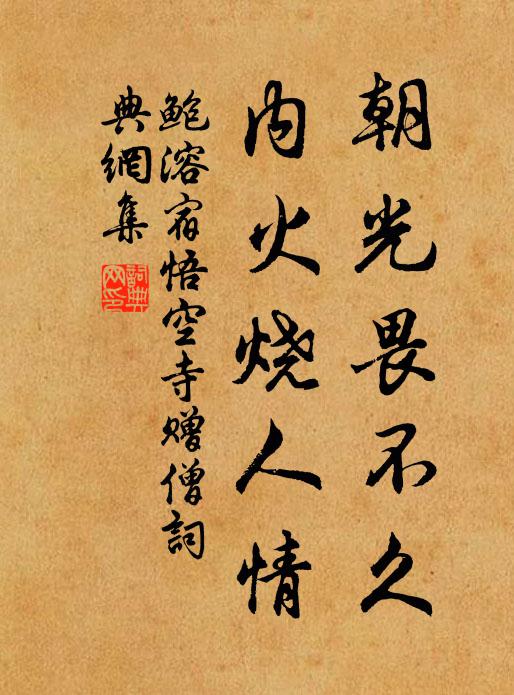 朝光畏不久
内火烧人情
鲍溶宿悟空寺赠僧詞
典網集
詞典网印